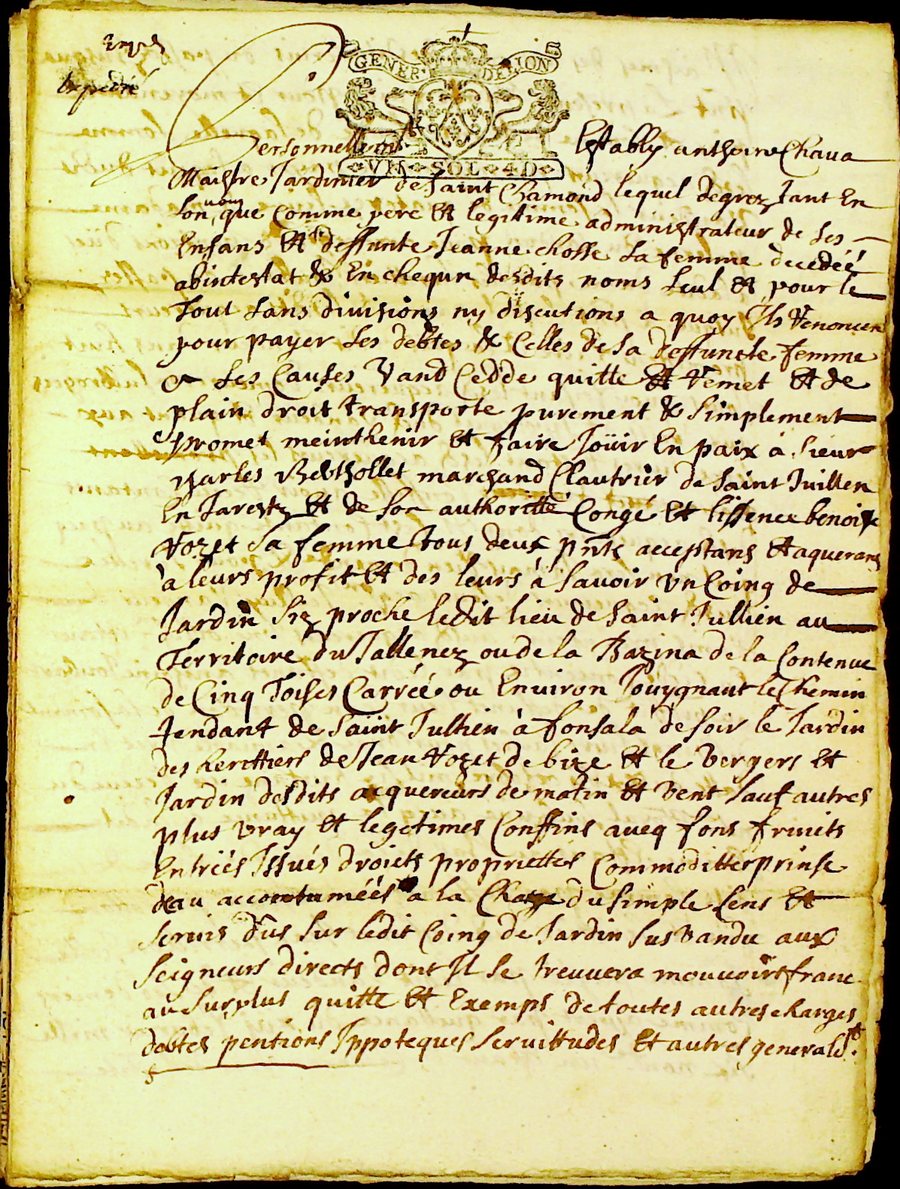 Expedié
GENER DE LION
VN SOL 4D
Personnellemt Estably anthoine Chava
Maistre Jardinier de Saint Chamond lequel de grez tant En
son nom que Comme pere et legitime administrateur de ses
Enfans Et de deffunte Jeanne chosse sa femme decedéé
abintestat & En chequn desdits noms seul et pour le
tout sans divisions ny discutions a quoy Ils Renoncen
pour payer ses debtes & Celles de sa deffuncte femme
& ses Causes Vand Cedde quitte Et Remet Et de
plain droit transporte purement & simplement
promet meinthenir et faire Joüir En paix à sieur
charles Berthollet marchand Clautrier de saint Juillen
En Jarestz Et de son authoritté Congé Et lissence benoiste
Vozet sa femme tous deux pnts acceptans Et aquerans
à leurs profit Et des leurs à savoir Vn Coing de
Jardin siz proche ledit lieu de saint Jullien au
Territoire du Tallenez ou de la Bazina de la Contenue
de Cinq Toises Carréé ou Environ Jouygnant le Chemin
tendant de saint Jullien à fonsala de soir le Jardin
des herittiers de Jean Vozet de bize Et le Vergers Et
Jardin desdits acquereurs de matin Et Vent sauf autres
plus vray Et legetimes Conffins aveq fons fruits
Entriés Issués droicts propriettés Commoditter prinse
deau accoutumééś a la Charge du simple sens Et
servis dus sur ledit Coing de Jardin sus vandu aux
seigneurs directs dont Il se treuvera mouvoir franc
au surplus quitte Et Exemps de toutes autres charges
debtes pentions Ippoteques servittudes Et autres generalet.